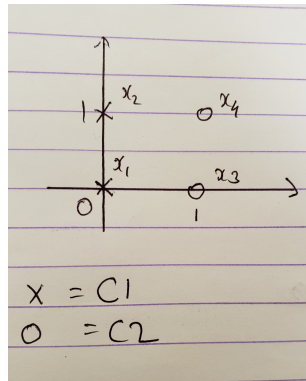 1 x₂ x₄
x₁ x₃
0 1
x = C1
o = C2